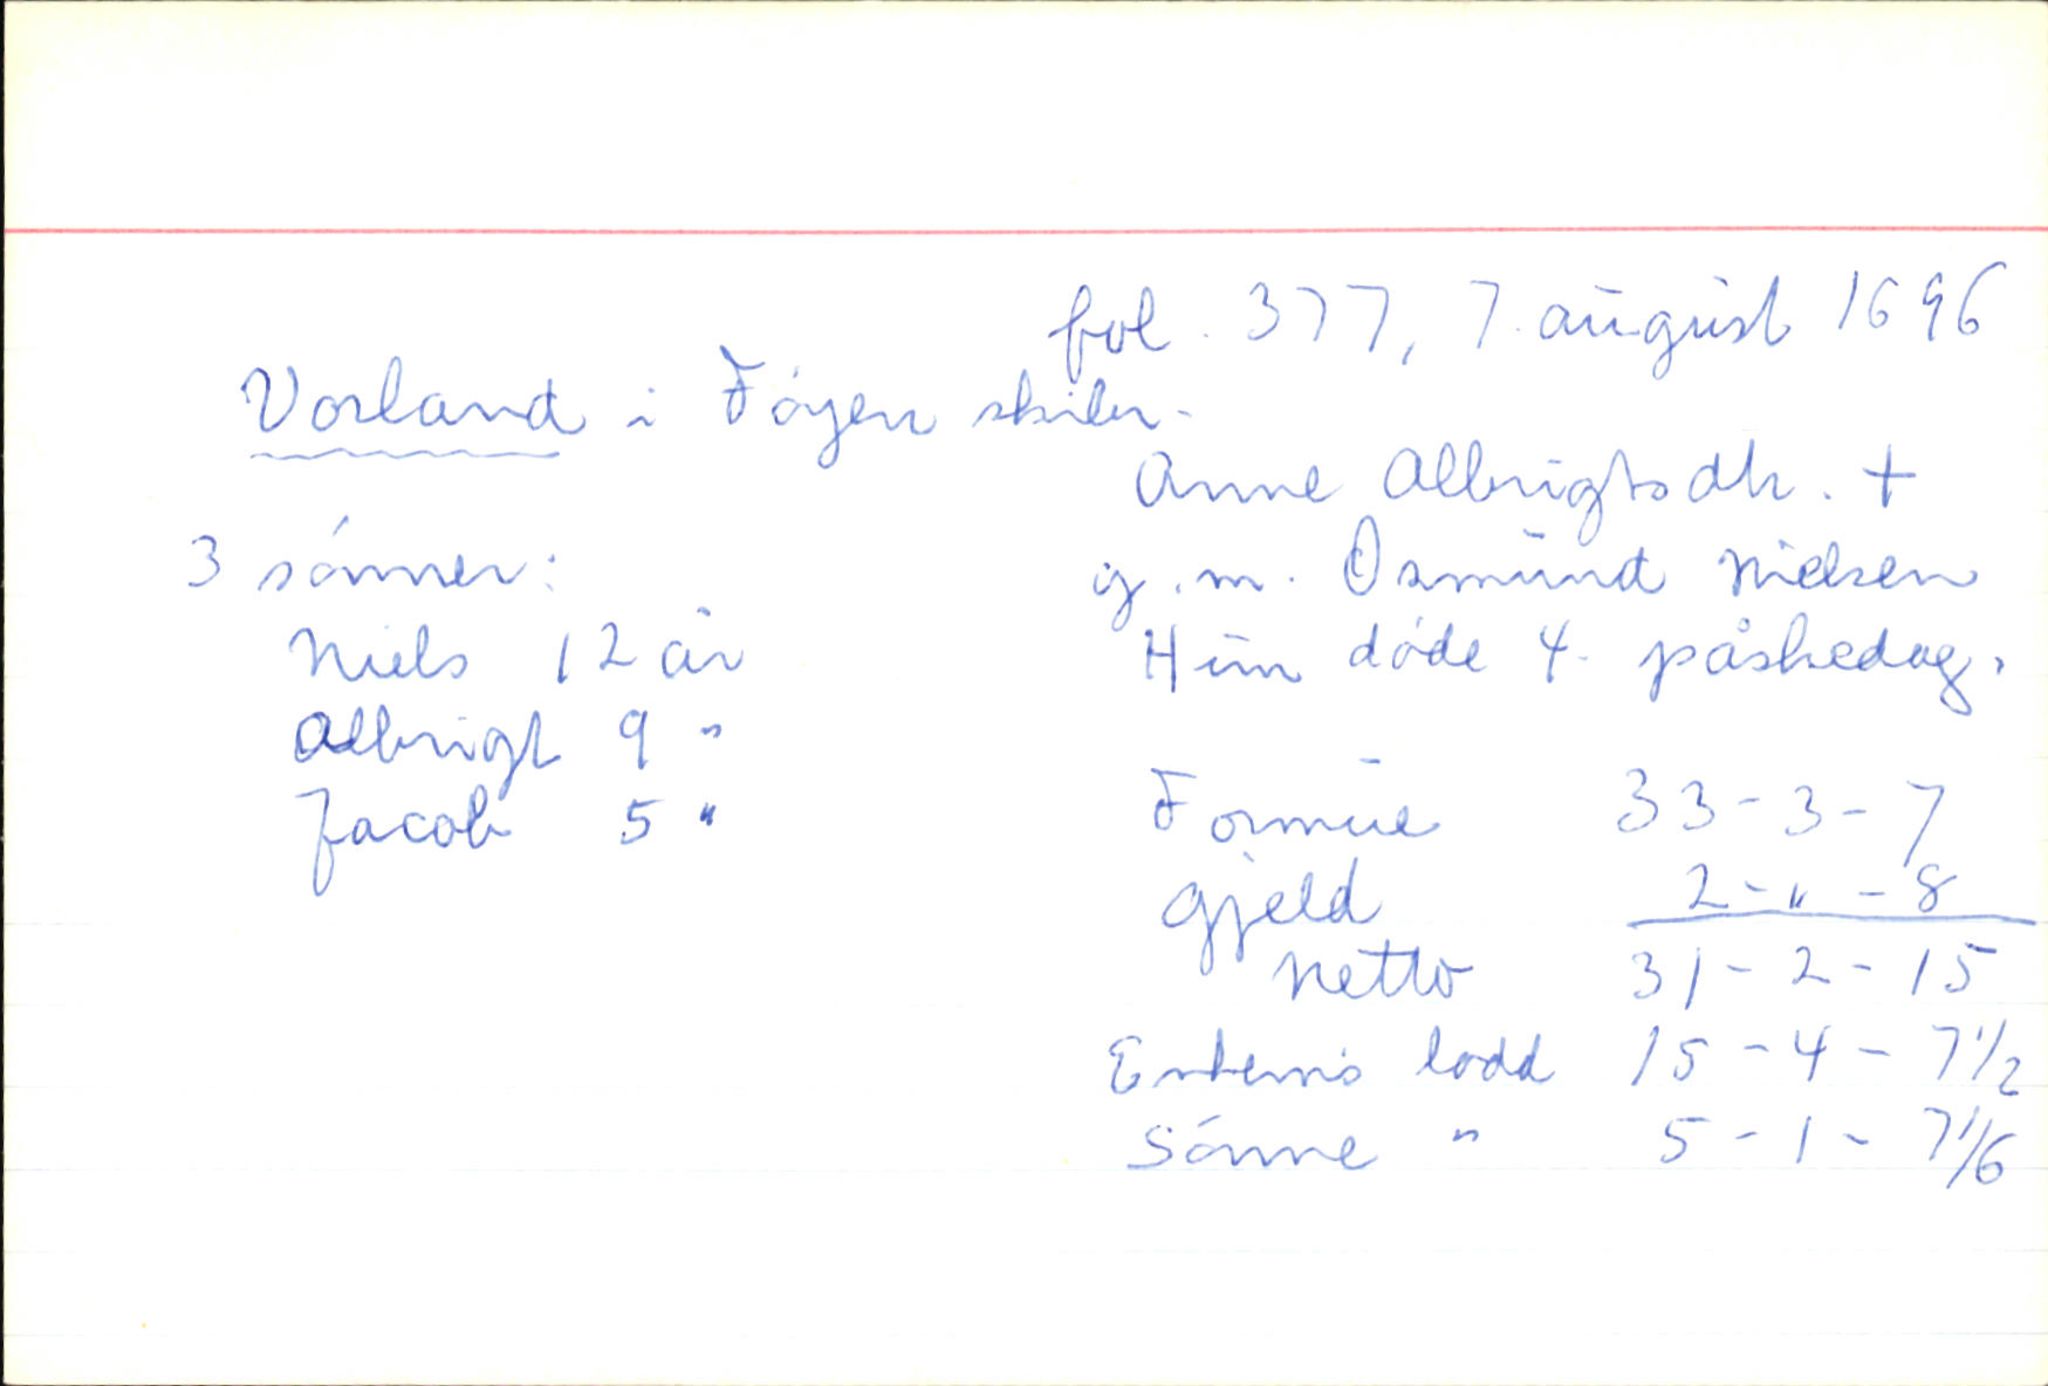 fol. 377, 7. august 1696
Vorland i Føyen skibr.
Anne Albrigtsdtr. +
g.m. Osmund Nielsen
Hun døde 4. påskedag.
3 sønner:
Niels 12 år
Albrigt 9 "
Jacob 5 "
Formue 33 - 3 - 7
Gjeld 2 - " - 8
Netto 31 - 2 - 15
Enkem's lodd 15 - 4 - 7 1/2
Sønne " 5 - 1 - 7 1/6